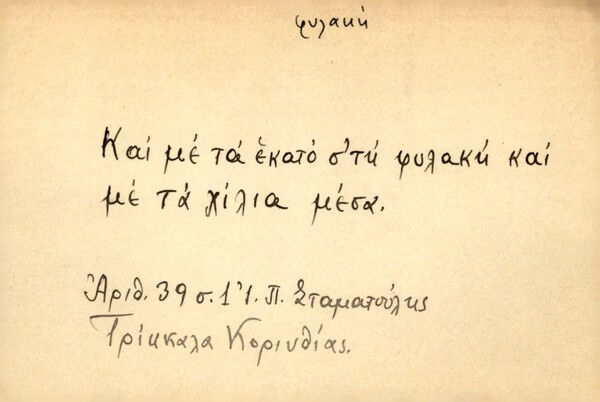 φυλακή
Καί μέ τά ἑκατό σ'τή φυλακή καί
μέ τά χίλια μέσα.
Ἀριθ. 39 σ. 11. Π. Σταματούλης
Τρίκκαλα Κορινθίας.